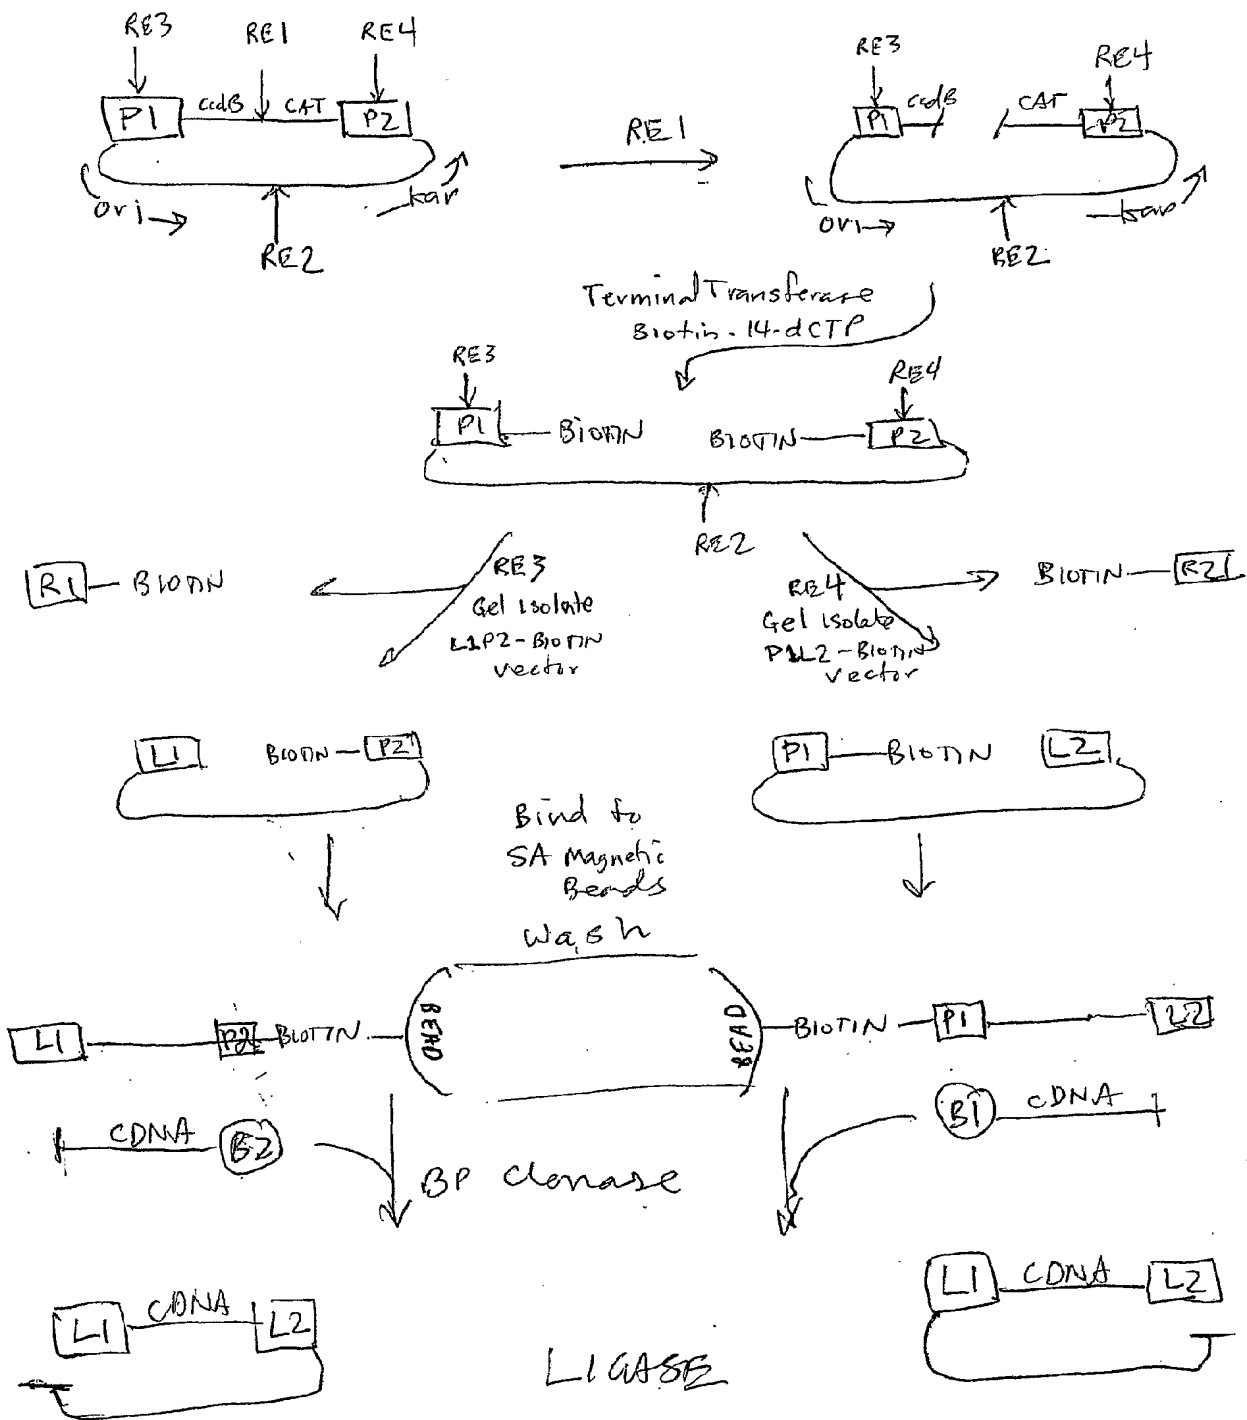 RE3 RE1 RE4
P1 ccdB CAT P2
ori kan
RE2
RE1
RE3 RE4
P1 ccdB CAT P2
ori kan
RE2
Terminal Transferase
Biotin-14-dCTP
RE3 RE4
P1 BIOTIN BIOTIN P2
RE2
R1 BIOTIN
RE3
Gel Isolate
L1P2-BIOTIN
vector
RE4
Gel Isolate
P1L2-BIOTIN
vector
BIOTIN R2
L1 BIOTIN P2
P1 BIOTIN L2
Bind to
SA Magnetic
Beads
Wash
L1 P2 BIOTIN BEAD
BEAD BIOTIN P1 L2
CDNA B2
B1 CDNA
BP Clonase
L1 CDNA L2
L1 CDNA L2
LIGASE